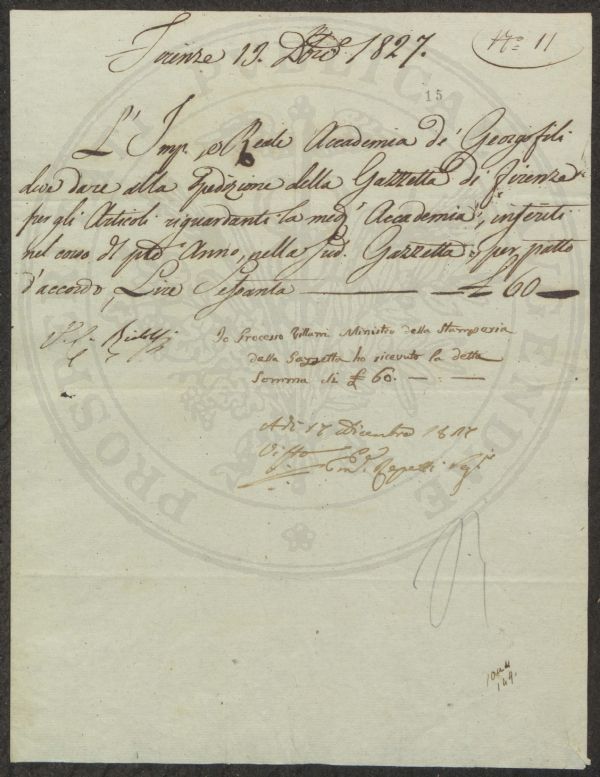 Firenze 13. Dbre. 1827.
No. 11
15
L'Imp. e Reale Accademia de' Georgofili
deve dare alla Spedizione della Gazzetta di Firenze
per gli Articoli riguardanti la med.a Accademia, inseriti
nel corso del pte. Anno, nella sud. Gazzetta, per patto
d'accordo, Lire Sessanta — — £ 60 —
Ridolfi
Io Processo Villani Ministro della Stamperia
della Gazzetta ho ricevuto la detta
Somma di £ 60. — : —
Adì 17 Dicembre 1827
Visto Em. Repetti Seg.
149.
PROSPERITATI PUBLICAE AUGENDAE